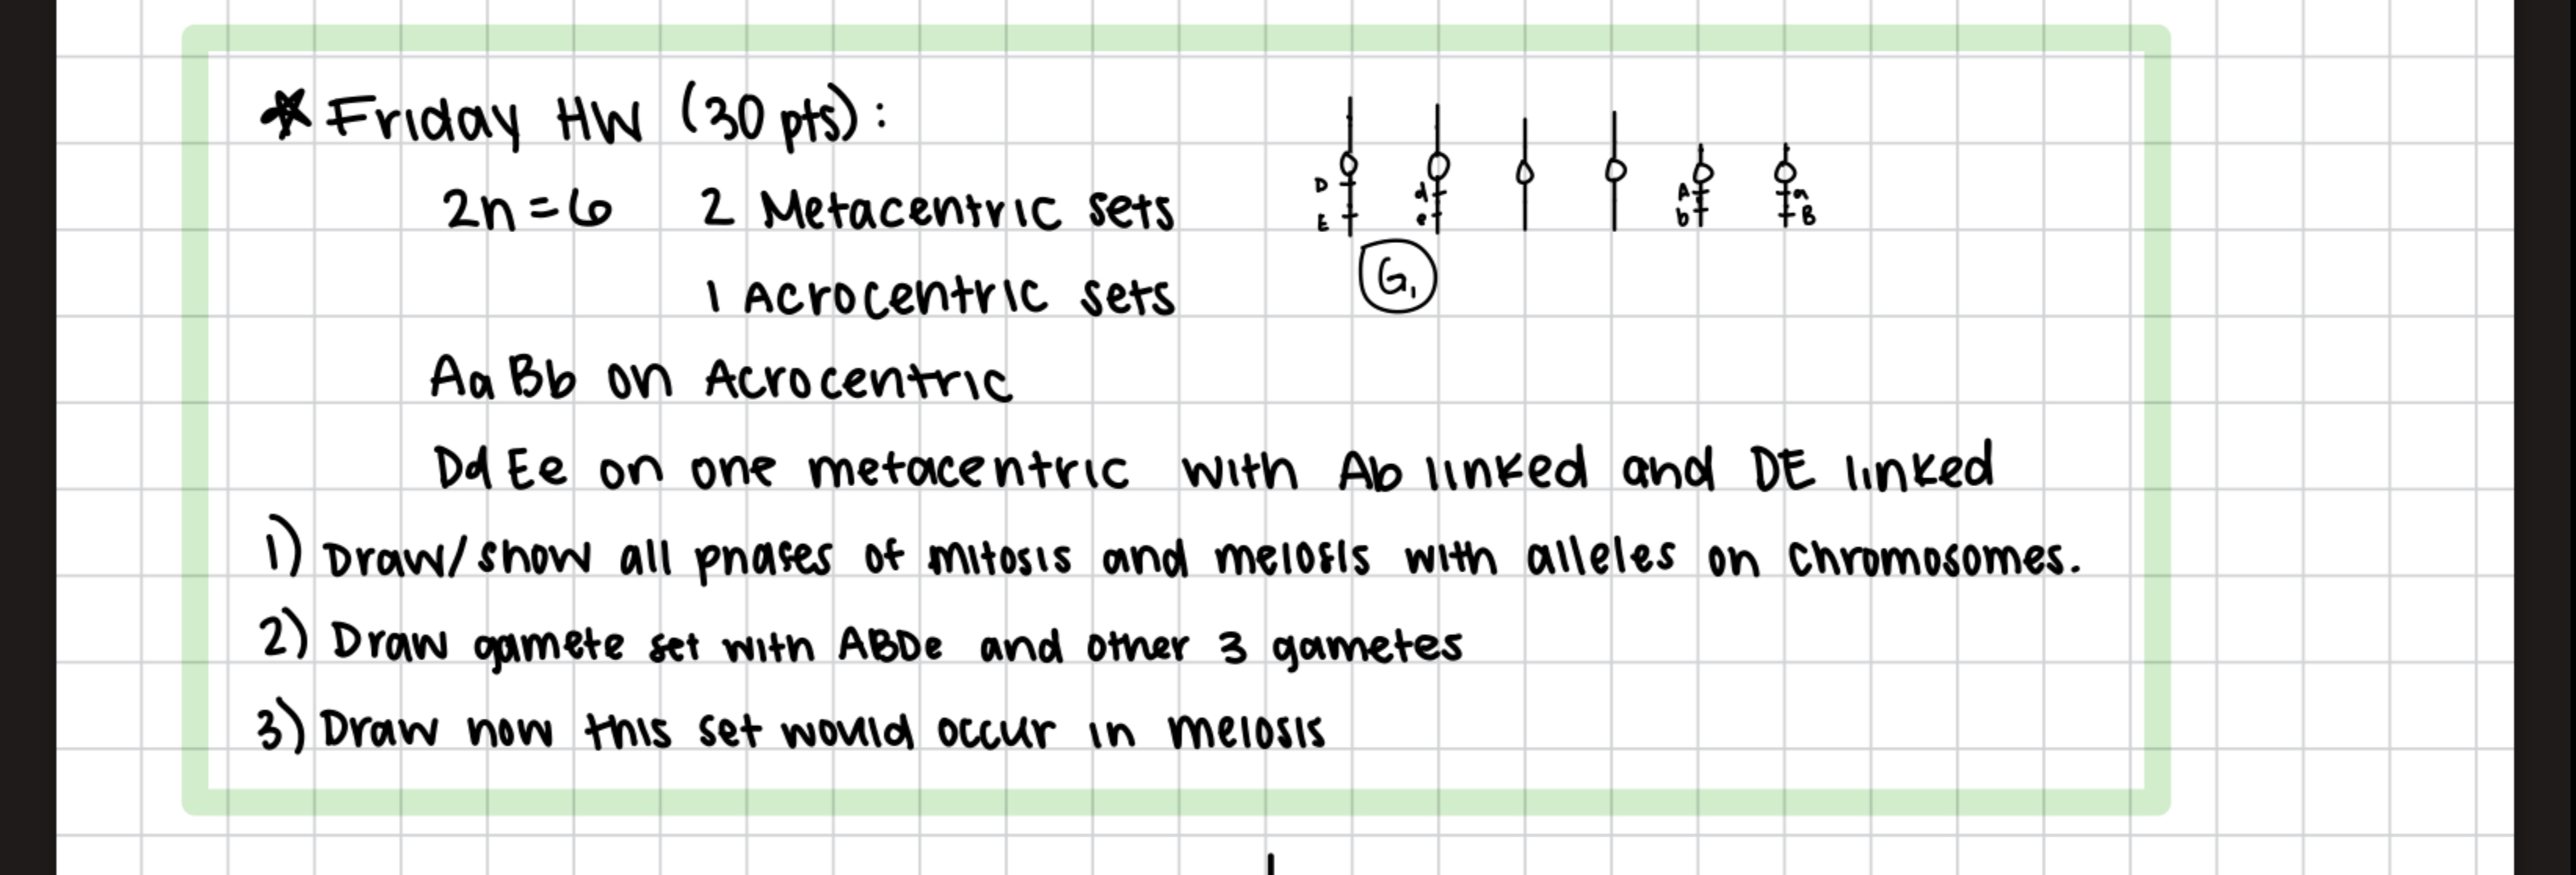 ★ Friday HW (30 pts):
2n=6 2 Metacentric sets
1 Acrocentric sets
AaBb on Acrocentric
DdEe on one metacentric with Ab linked and DE linked
1) Draw/show all phases of mitosis and meiosis with alleles on chromosomes.
2) Draw gamete set with ABDe and other 3 gametes
3) Draw how this set would occur in meiosis
D d A a
E e b B
G₁